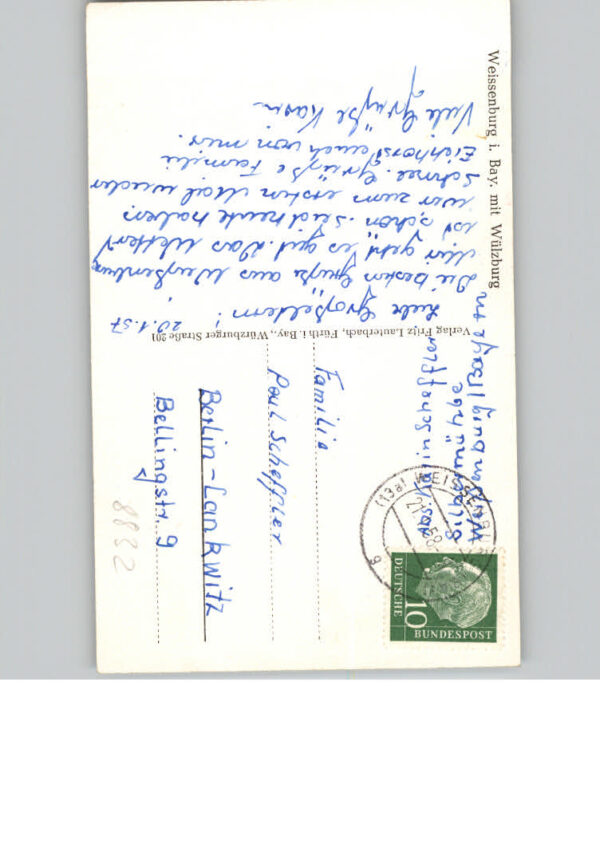 Weissenburg i. Bay. mit Wülzburg
20.1.57
Liebe Großeltern!
Die besten Grüße aus Weißenburg
Mir geht es gut. Das Wetter
ist schön. Seit heute haben
wir zum ersten Mal wieder
Schnee. Grüße Familie
Eichorst auch von mir.
Viele Grüße Karin
Verlag Fritz Lauterbach, Fürth i. Bay., Würzburger Straße 201
Weißenburg/Bayern
Galgenmühle
(13a) WEISSENBURG
DEUTSCHE
BUNDESPOST
10
Familie
Paul Scheffler
Berlin-Lankwitz
Bellingstr. 9
8832